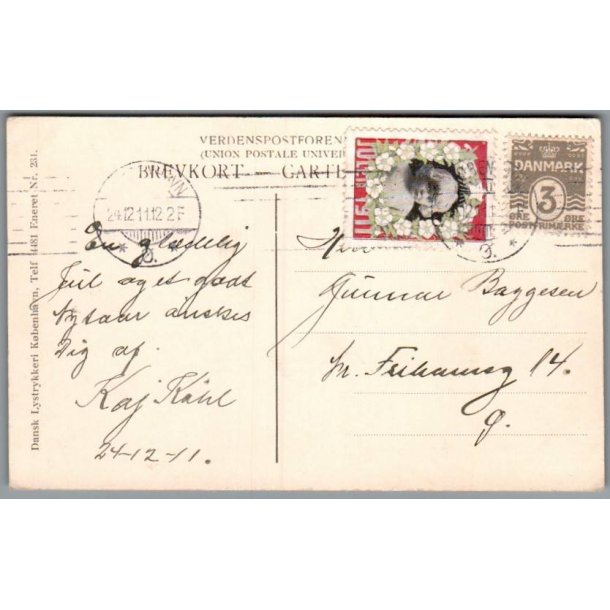 VERDENSPOSTFOREN
(UNION POSTALE UNIVER
BREVKORT — CARTE
24.12.11.12 2 F
Ø.
DANMARK
3
ØRE ØRE
POSTFRIMÆRKE
En glædelig
Jul og et godt
Nytaar ønskes
Dig af
Kaj Kühl
24-12-11.
Gunnar Baggesen
Frihavnsg 14.
Ø.
Dansk Lystrykkeri København, Telf 4481 Eneret Nr. 231.